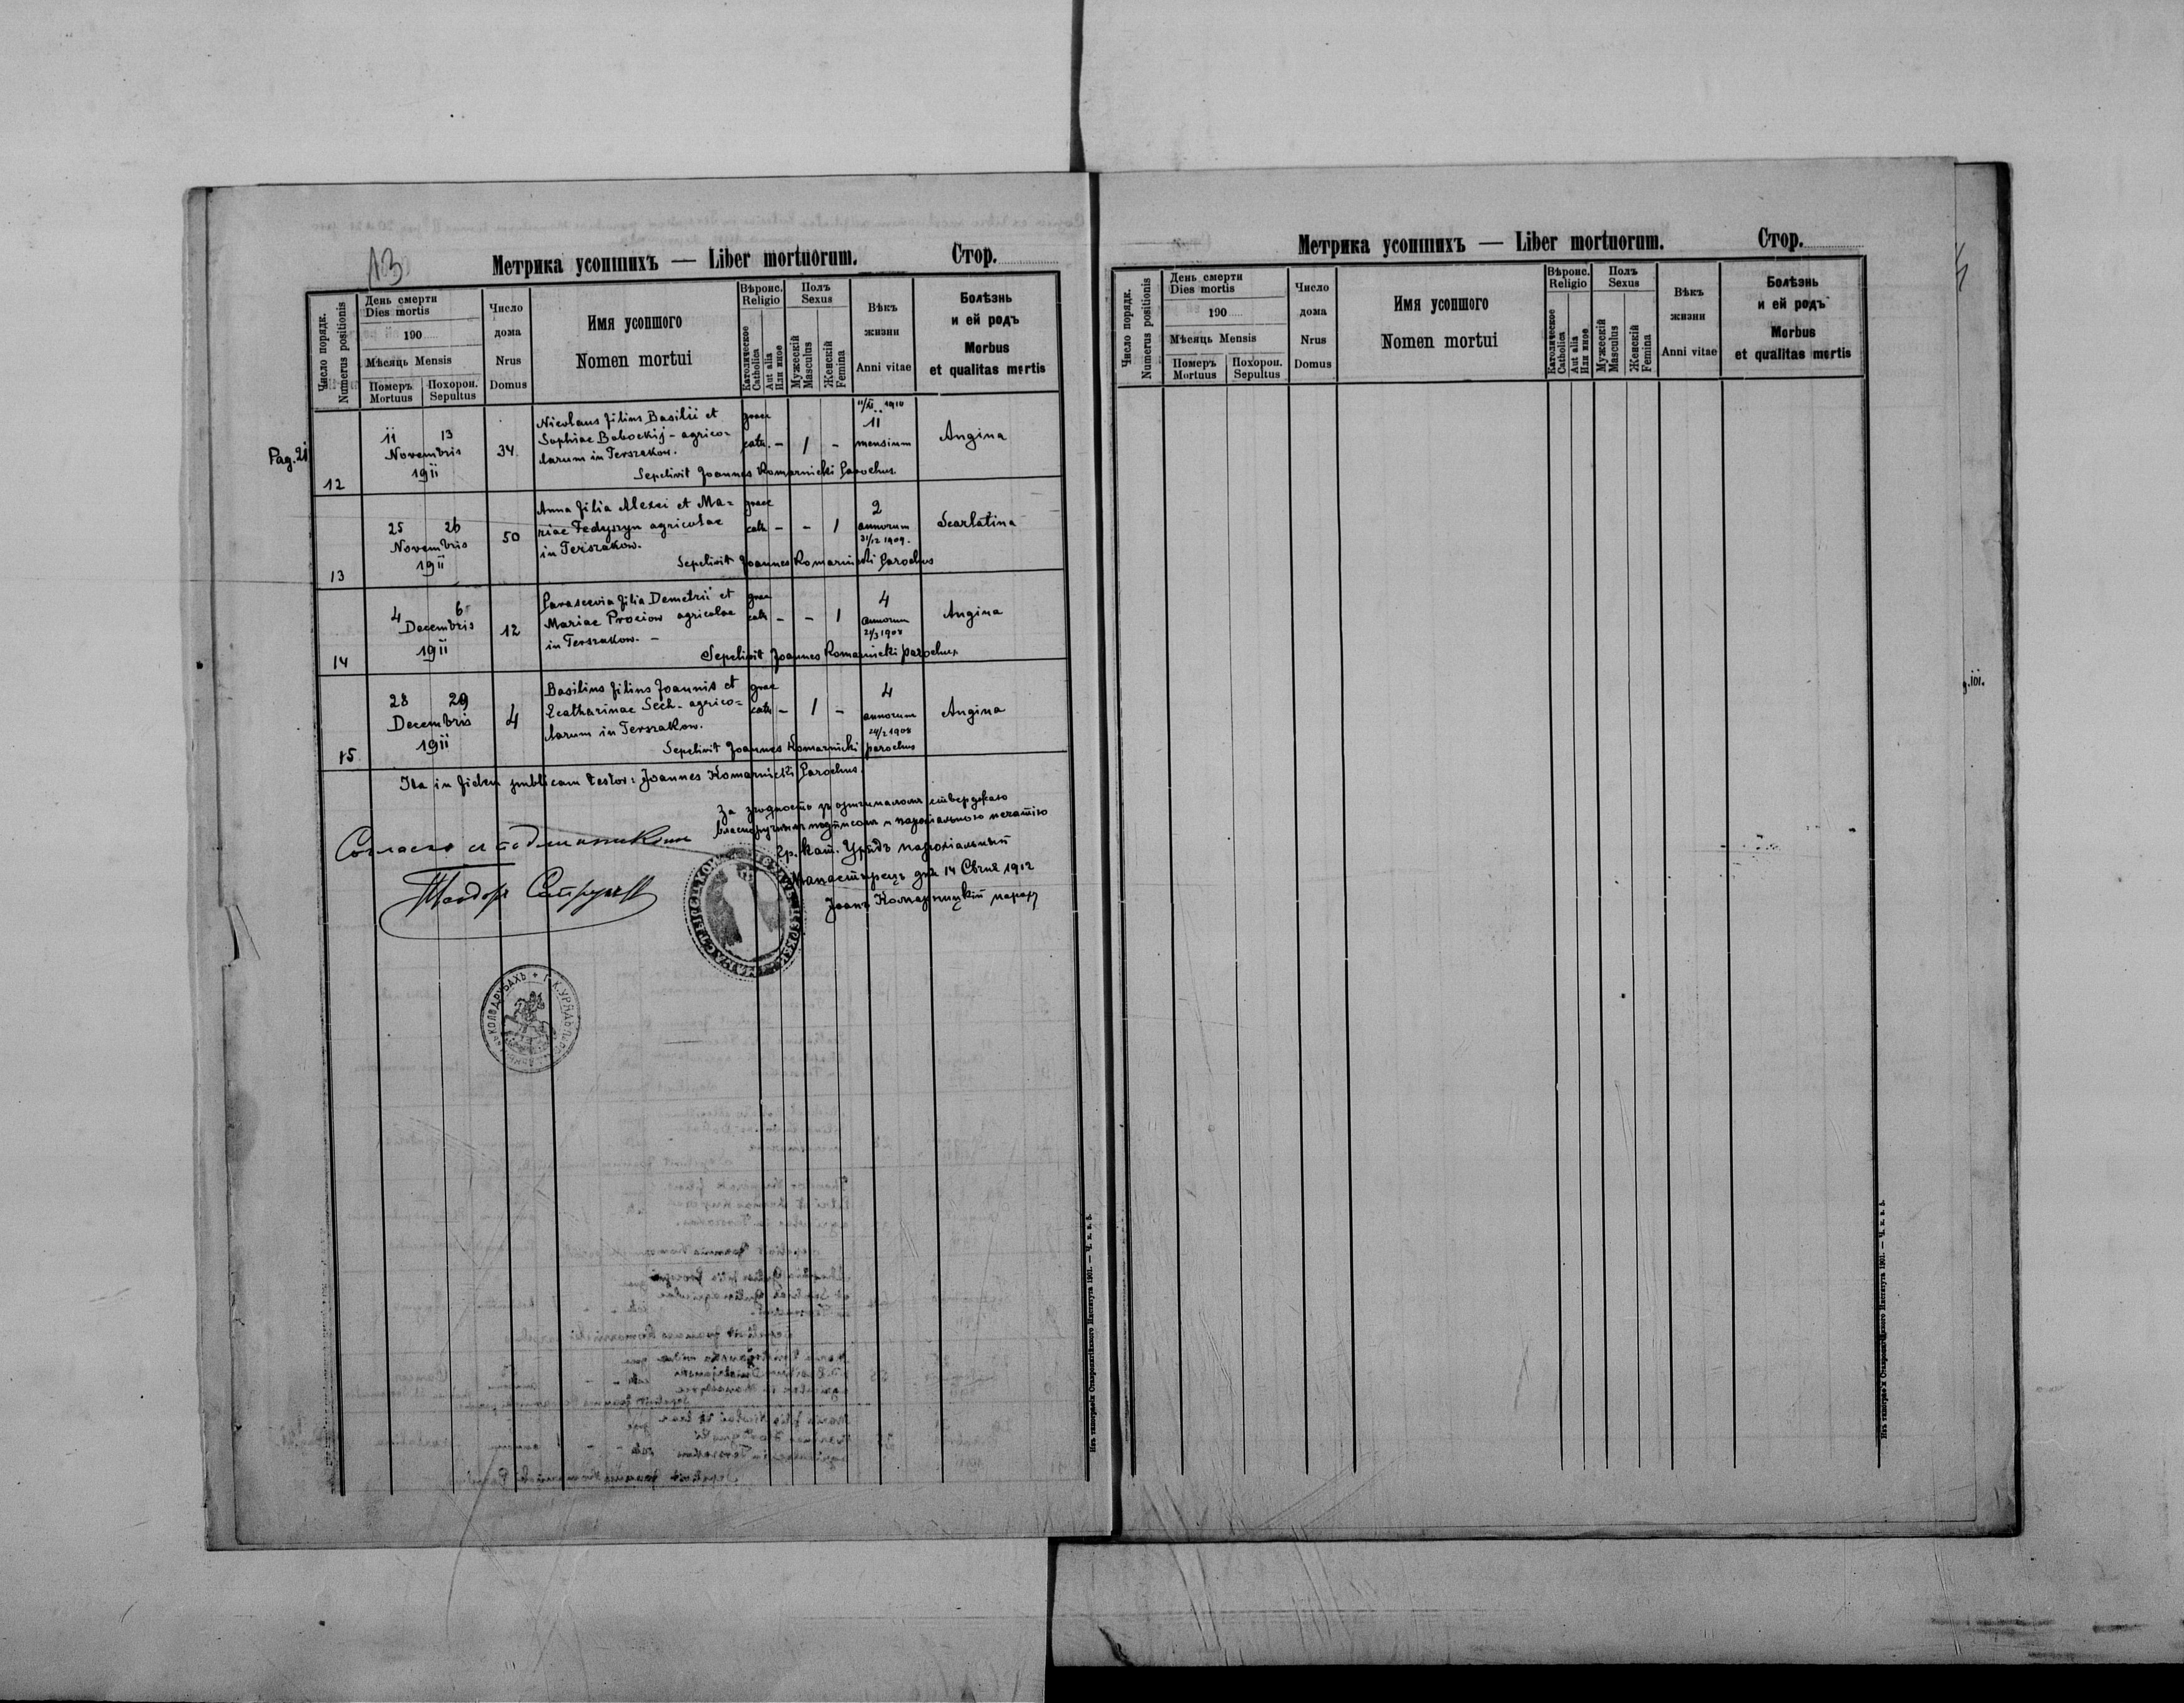 13
Метрика усопшихъ — Liber mortuorum. Стор.
Число порядк.
Numerus positionis
День смерти
Dies mortis
190
Мѣсяць Mensis
Померъ Mortuus
Похорон. Sepultus
Число дома
Nrus Domus
Имя усопшого
Nomen mortui
Вѣроис.
Religio
Католическое
Catholica
Aut alia
Или иное
Полъ
Sexus
Мужескій
Masculus
Женскій
Femina
Вѣкъ жизни
Anni vitae
Болѣзнь
и ей родъ
Morbus
et qualitas mortis
Pag. 21
12
11 13
Novembris
1911
34
Nicolaus filius Basilii et
Sophiae Babockij - agrico=
larum in Terszakow.
Sepelivit Joannes Komarnicki Parochus.
graec
cath. - 1 -
1910
11
mensium
Angina
13
25 26
Novembris
1911
50
Anna filia Alexei et Ma=
riae Fedyszyn agricolae
in Terszakow.
Sepelivit Joannes Komarnicki Parochus
graec
cath - - 1
2
annorum
31/12 1909.
Scarlatina
14
4 6
Decembris
1911
12
Parascevia filia Demetrii et
Mariae Prociow agricolae
in Terszakow. -
Sepelivit Joannes Komarnicki parochus
graec
cath - - 1
4
annorum
1908
Angina
15
28 29
Decembris
1911
4
Basilius filius Joannis et
Ecatharinae Sech - agrico=
larum in Terszakow.
Sepelivit Joannes Komarnicki parochus
graec
cath - 1 -
4
annorum
24/2 1908
Angina
Ita in fidem publicam testor: Joannes Komarnicki Parochus.
За згодность зъ оригиналомъ стверджаю
власноручнымъ подписомъ и парохіальною печатію
Гр. кат. Урядъ парохіальный
Манастырець дня 14 Січня 1912
Іоанъ Комарницкій парох
Согласно
Теодоръ
Метрика усопшихъ — Liber mortuorum. Стор.
Число порядк.
Numerus positionis
День смерти
Dies mortis
190
Мѣсяць Mensis
Померъ Mortuus
Похорон. Sepultus
Число дома
Nrus Domus
Имя усопшого
Nomen mortui
Вѣроис.
Religio
Католическое
Catholica
Aut alia
Или иное
Полъ
Sexus
Мужескій
Masculus
Женскій
Femina
Вѣкъ жизни
Anni vitae
Болѣзнь
и ей родъ
Morbus
et qualitas mortis
Изъ типографіи Ставропигійского Института 1901. — Ч. к. в. 5.
Изъ типографіи Ставропигійского Института 1901. — Ч. к. в. 5.